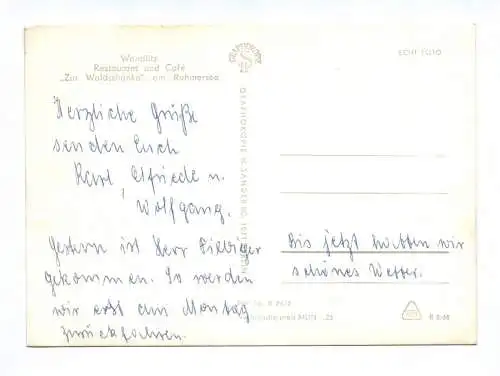 Wandlitz
Restaurant und Café
„Zur Waldschänke" am Rahmersee
ECHT FOTO
GRAPHOKOPIE H. SANGER KG, 1071 BERLIN
Herzliche Grüße
senden Euch
Karl, Elfriede u.
Wolfgang.
Gestern ist Herr
gekommen. So werden
wir erst am Montag
zurückfahren.
Bis jetzt hatten wir
schönes Wetter.